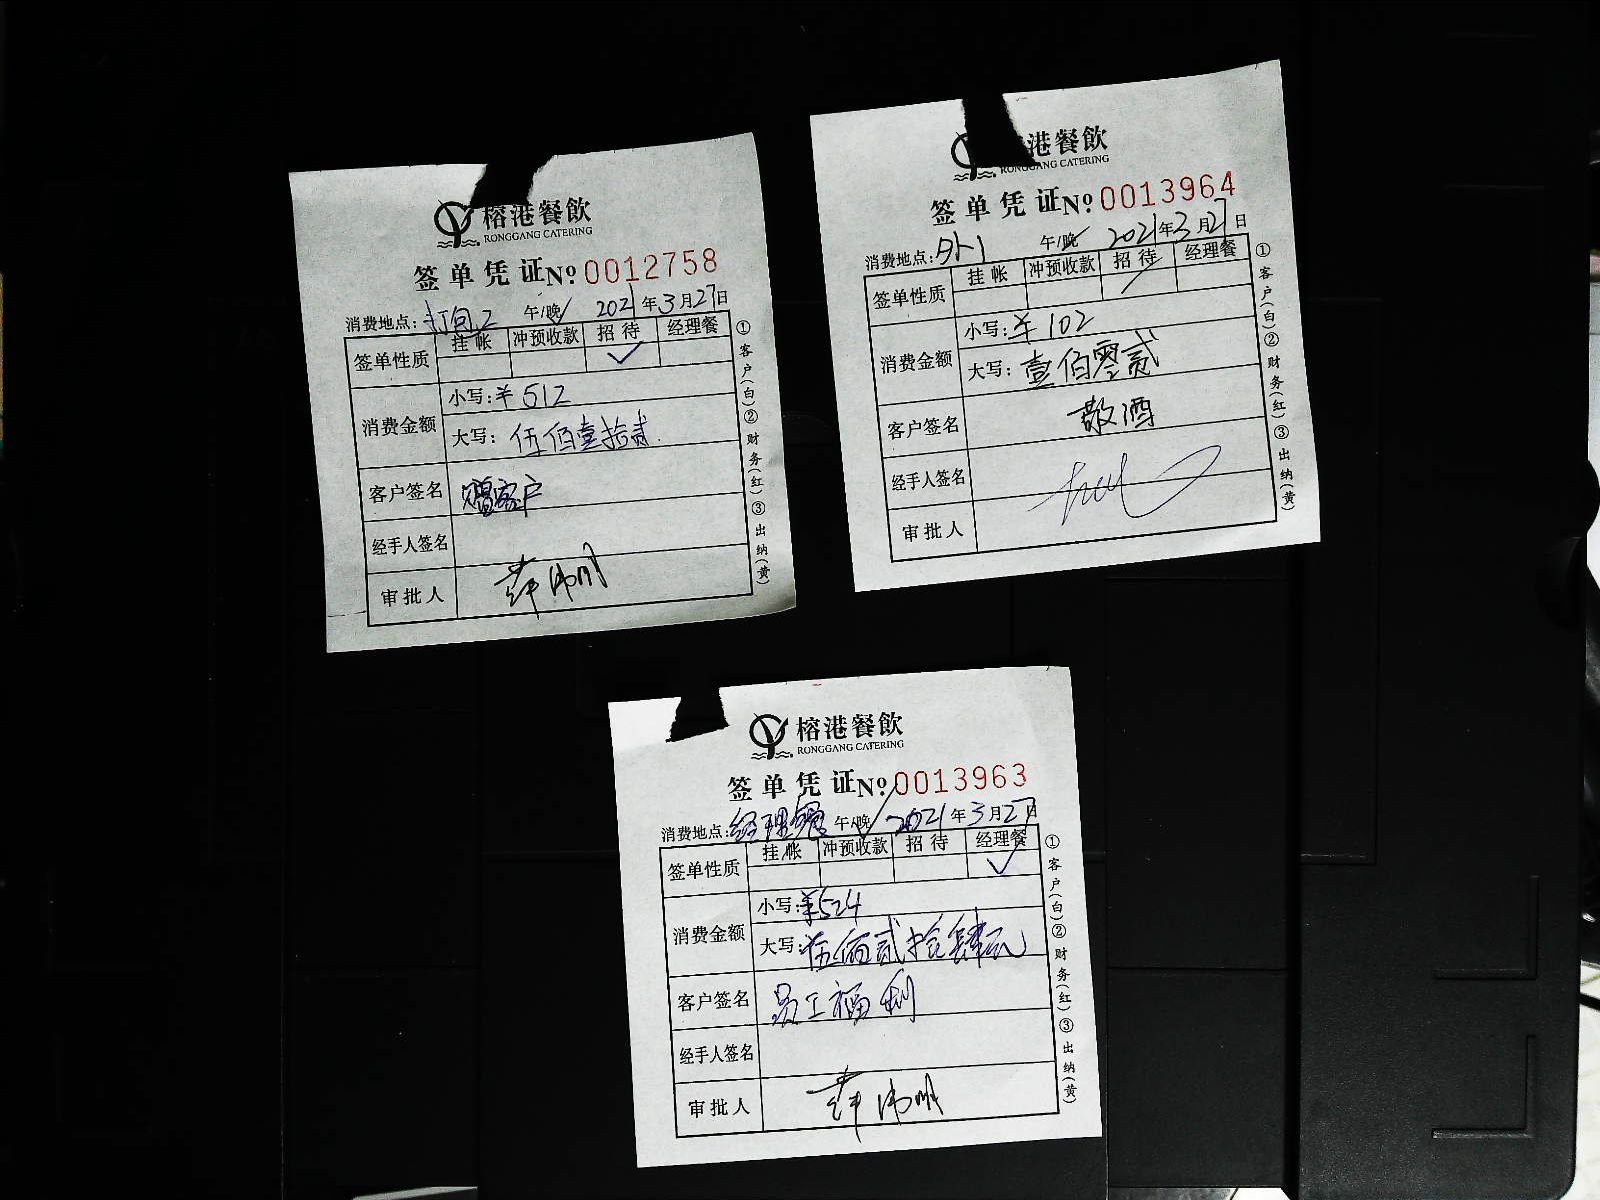 榕港餐飲
RONGGANG CATERING
签单凭证 № 0012758
消费地点: 打包2 午/晚 2021年3月27日
签单性质 挂帐 冲预收款 招待 经理餐
✓
消费金额 小写: ¥512
大写: 伍佰壹拾贰
客户签名 赠客户
经手人签名
审批人
①客户(白)②财务(红)③出纳(黄)
港餐飲
RONGGANG CATERING
签单凭证 № 0013964
消费地点: 午/晚 2021年3月27日
签单性质 挂帐 冲预收款 招待 经理餐
消费金额 小写: ¥102
大写: 壹佰零贰
客户签名 敬酒
经手人签名
审批人
①客户(白)②财务(红)③出纳(黄)
榕港餐飲
RONGGANG CATERING
签单凭证 № 0013963
消费地点: 经理餐 午/晚 2021年3月27日
签单性质 挂帐 冲预收款 招待 经理餐
✓
消费金额 小写: ¥524
大写: 伍佰贰拾肆元
客户签名 员工福利
经手人签名
审批人
①客户(白)②财务(红)③出纳(黄)